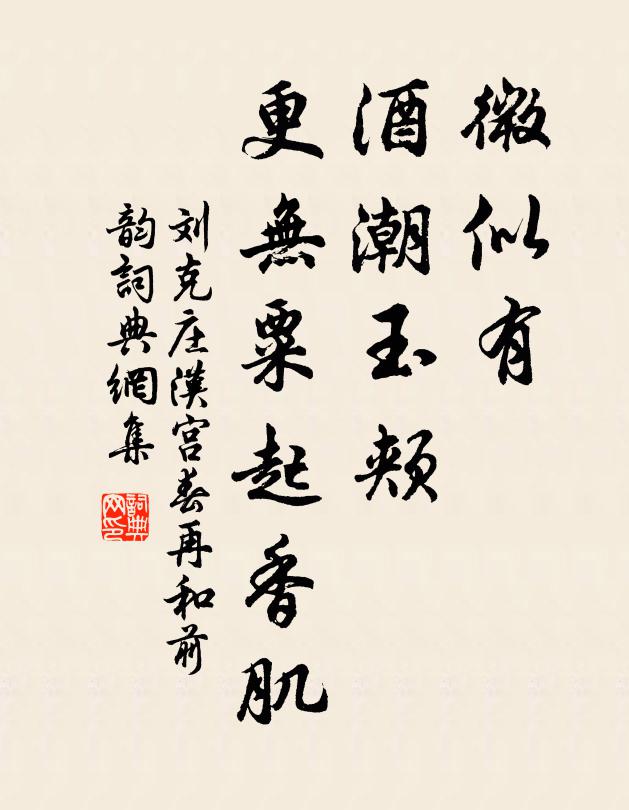 微似有
酒潮玉頰
更無粟起香肌
刘克庄漢宮春再和前
韵詞典網集
詞典
网印